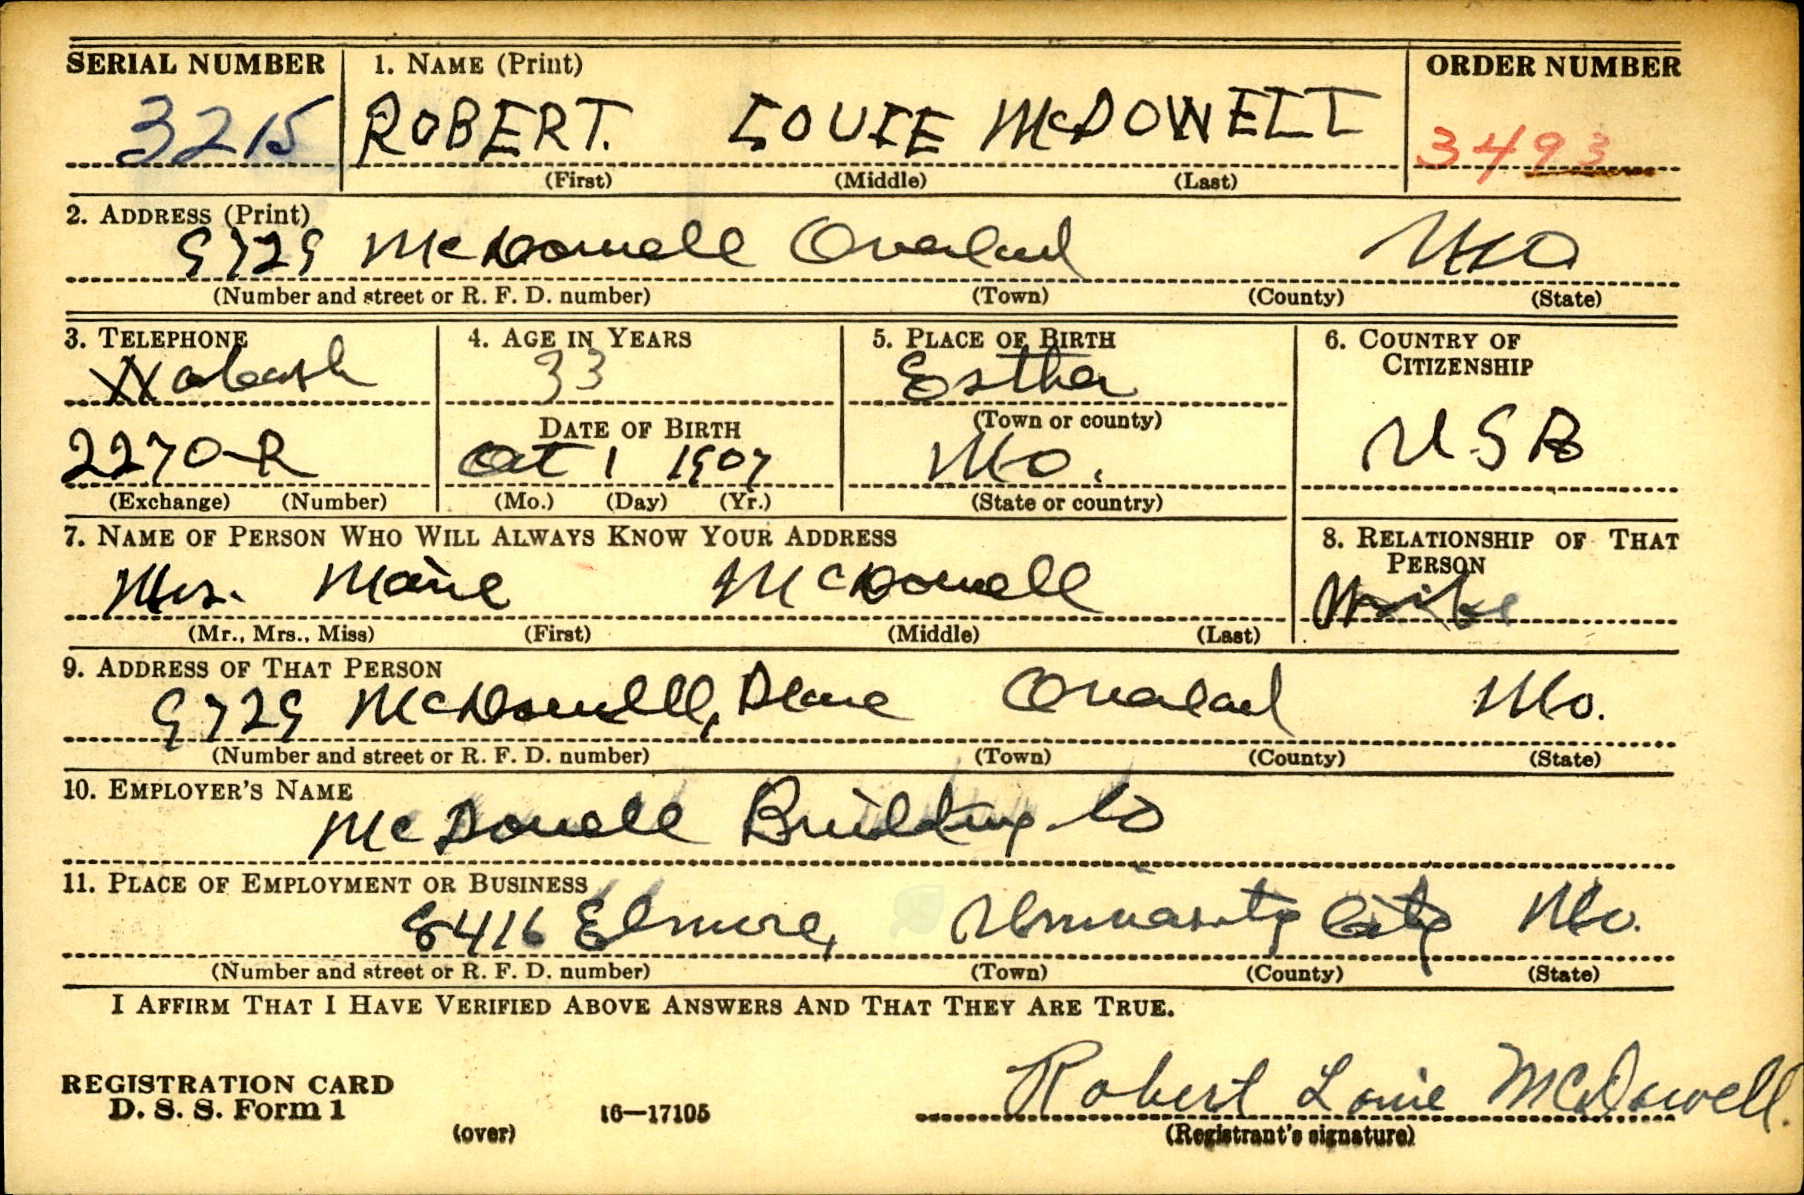 SERIAL NUMBER 1. NAME (Print) ORDER NUMBER
3215 ROBERT. LOUIE McDOWELL 3493
(First) (Middle) (Last)
2. ADDRESS (Print)
9729 McDowell Overland Mo
(Number and street or R. F. D. number) (Town) (County) (State)
3. TELEPHONE 4. AGE IN YEARS 5. PLACE OF BIRTH 6. COUNTRY OF CITIZENSHIP
Wabash 33 Esther
DATE OF BIRTH (Town or county)
2270-R Oct 1 1907 Mo. USA
(Exchange) (Number) (Mo.) (Day) (Yr.) (State or country)
7. NAME OF PERSON WHO WILL ALWAYS KNOW YOUR ADDRESS 8. RELATIONSHIP OF THAT PERSON
Mrs. Marie McDowell Wife
(Mr., Mrs., Miss) (First) (Middle) (Last)
9. ADDRESS OF THAT PERSON
9729 McDowell, Overland Mo.
(Number and street or R. F. D. number) (Town) (County) (State)
10. EMPLOYER'S NAME
McDowell Building Co
11. PLACE OF EMPLOYMENT OR BUSINESS
8416 Elmore, University City Mo.
(Number and street or R. F. D. number) (Town) (County) (State)
I AFFIRM THAT I HAVE VERIFIED ABOVE ANSWERS AND THAT THEY ARE TRUE.
REGISTRATION CARD
D. S. S. Form 1 16—17105 Robert Louie McDowell.
(over) (Registrant's signature)